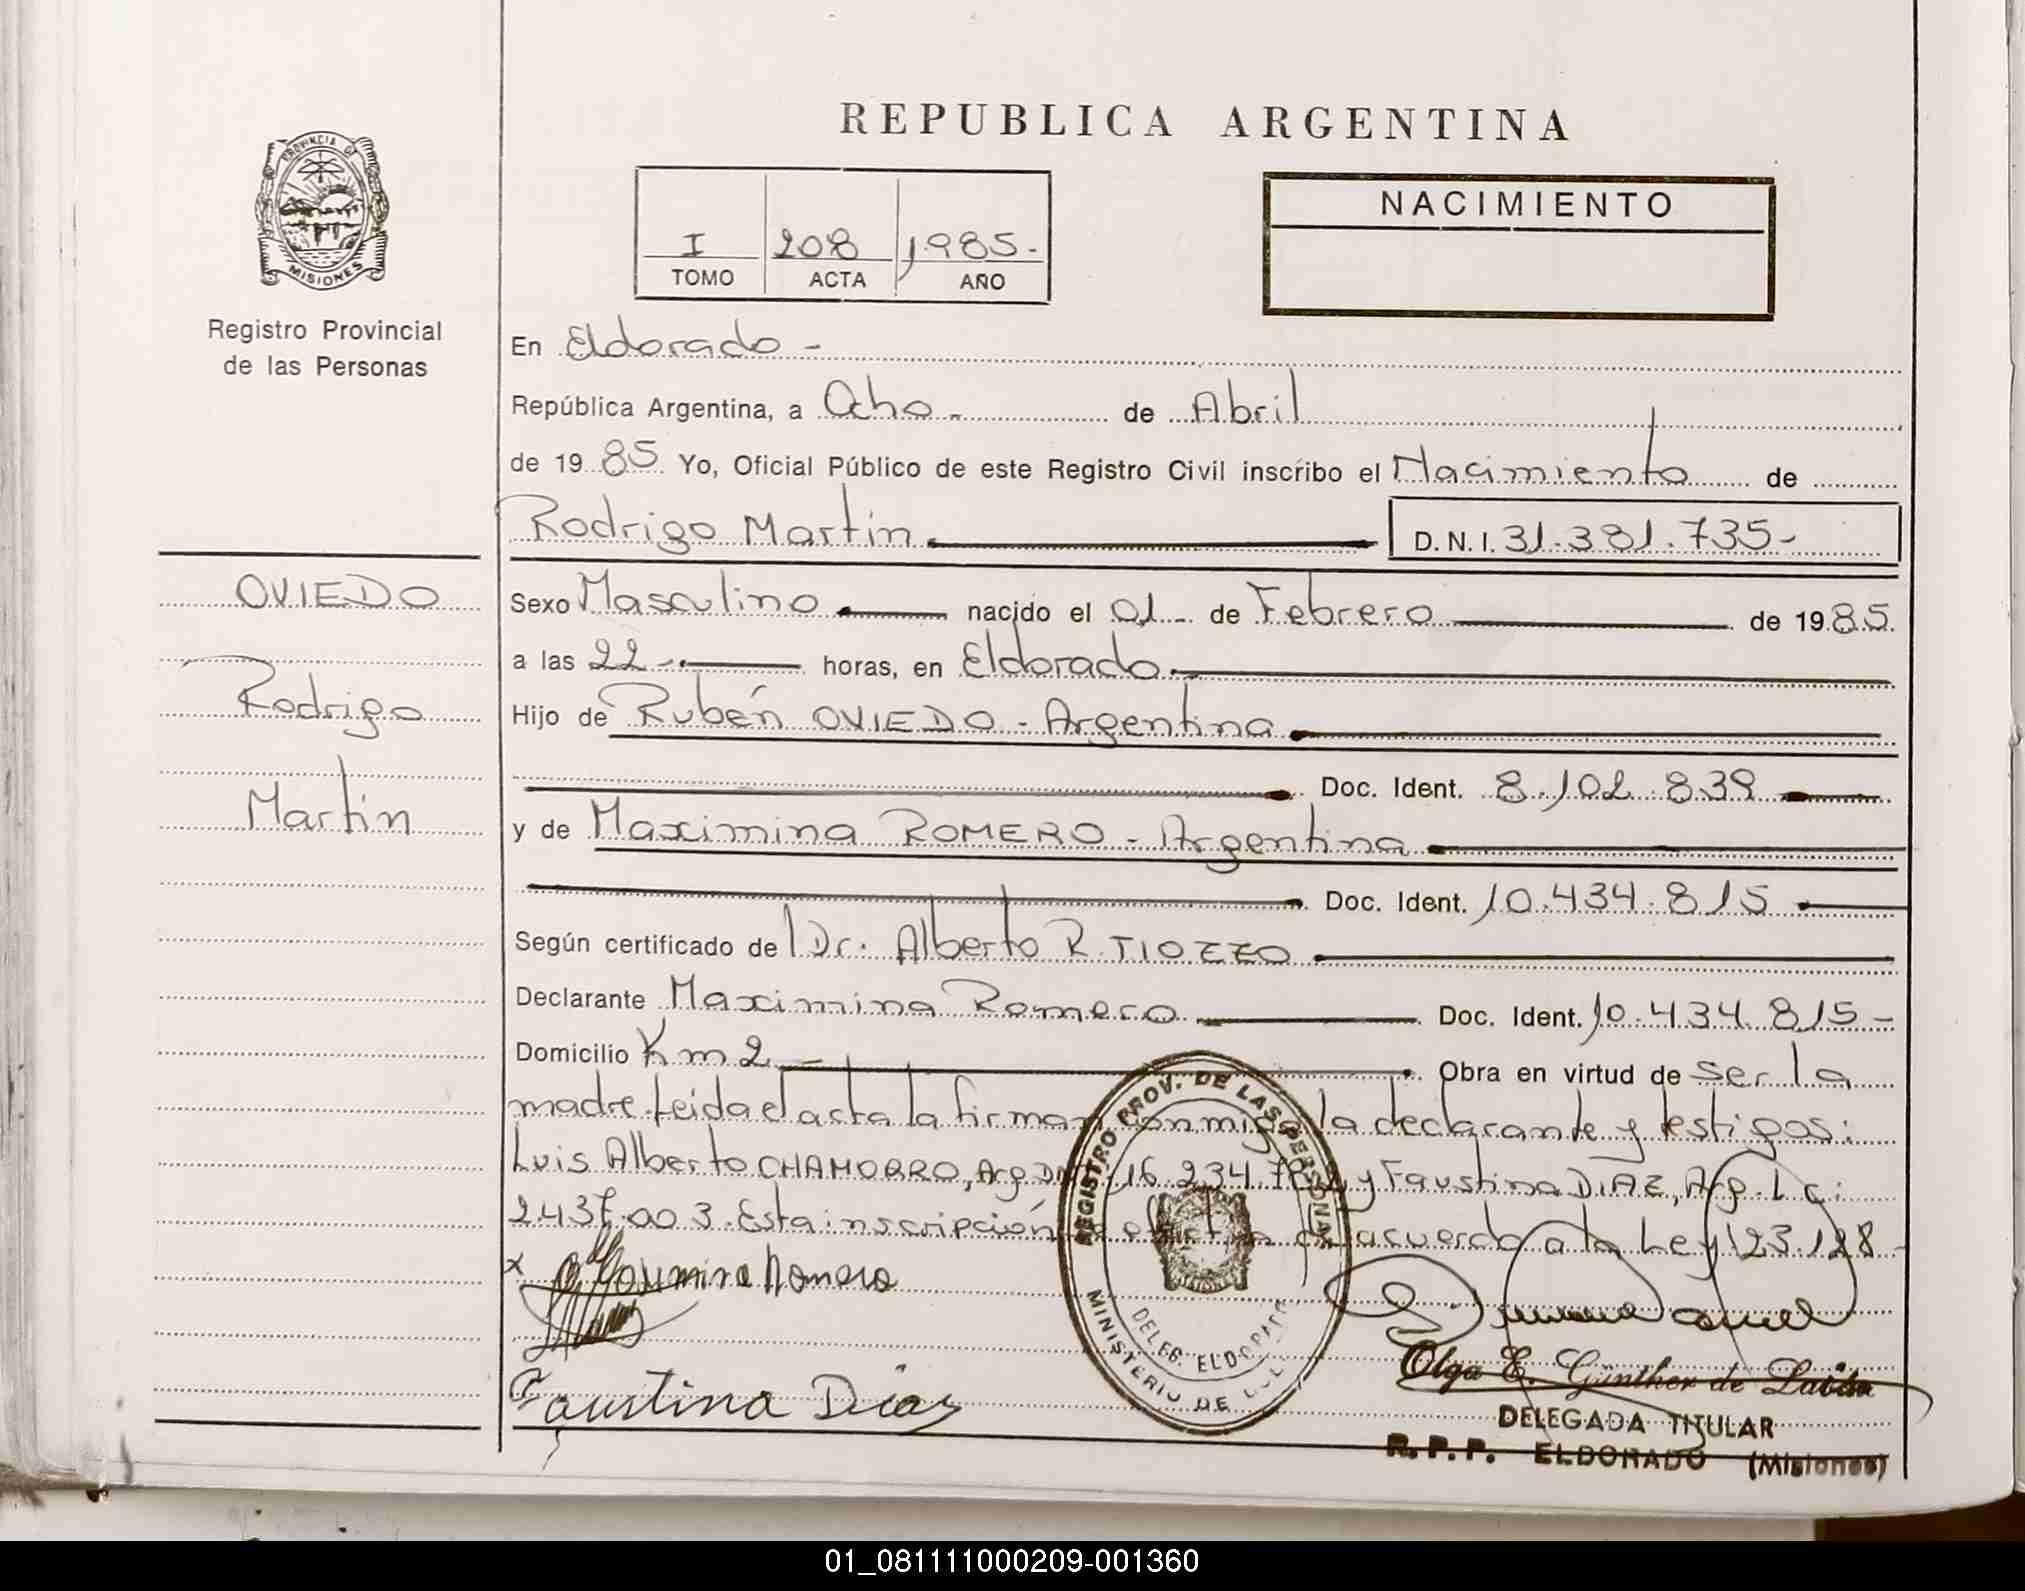 REPUBLICA ARGENTINA
PROVINCIA DE
MISIONES
Registro Provincial
de las Personas
I 208 1985-
TOMO ACTA AÑO
NACIMIENTO
En Eldorado -
República Argentina, a Ocho - de Abril
de 1985 Yo, Oficial Público de este Registro Civil inscribo el Nacimiento de
Rodrigo Martín D.N.I. 31.381.735-
OVIEDO
Rodrigo
Martín
Sexo Masculino nacido el 01 - de Febrero de 1985
a las 22 - horas, en Eldorado
Hijo de Rubén OVIEDO - Argentina
Doc. Ident. 8.102.839
y de Maximina ROMERO - Argentina
Doc. Ident. 10.434.815
Según certificado de Dr. Alberto R. TIOZZO
Declarante Maximina Romero Doc. Ident. 10.434.815-
Domicilio Km 2 Obra en virtud de ser la
madre. Leida el acta la firman conmigo la declarante y testigos:
Luis Alberto CHAMORRO, Arg. 16.234. y Faustina DIAZ, Arg. L.C:
003. Esta inscripción de acuerdo a la Ley 23.128-
x Maximina Romero
Faustina Diaz
REGISTRO PROV. DE LAS PERSONAS
DELEG. ELDORADO
MINISTERIO DE
Olga E. Günther de
DELEGADA TITULAR
R.P.P. ELDORADO (Misiones)
01_081111000209-001360